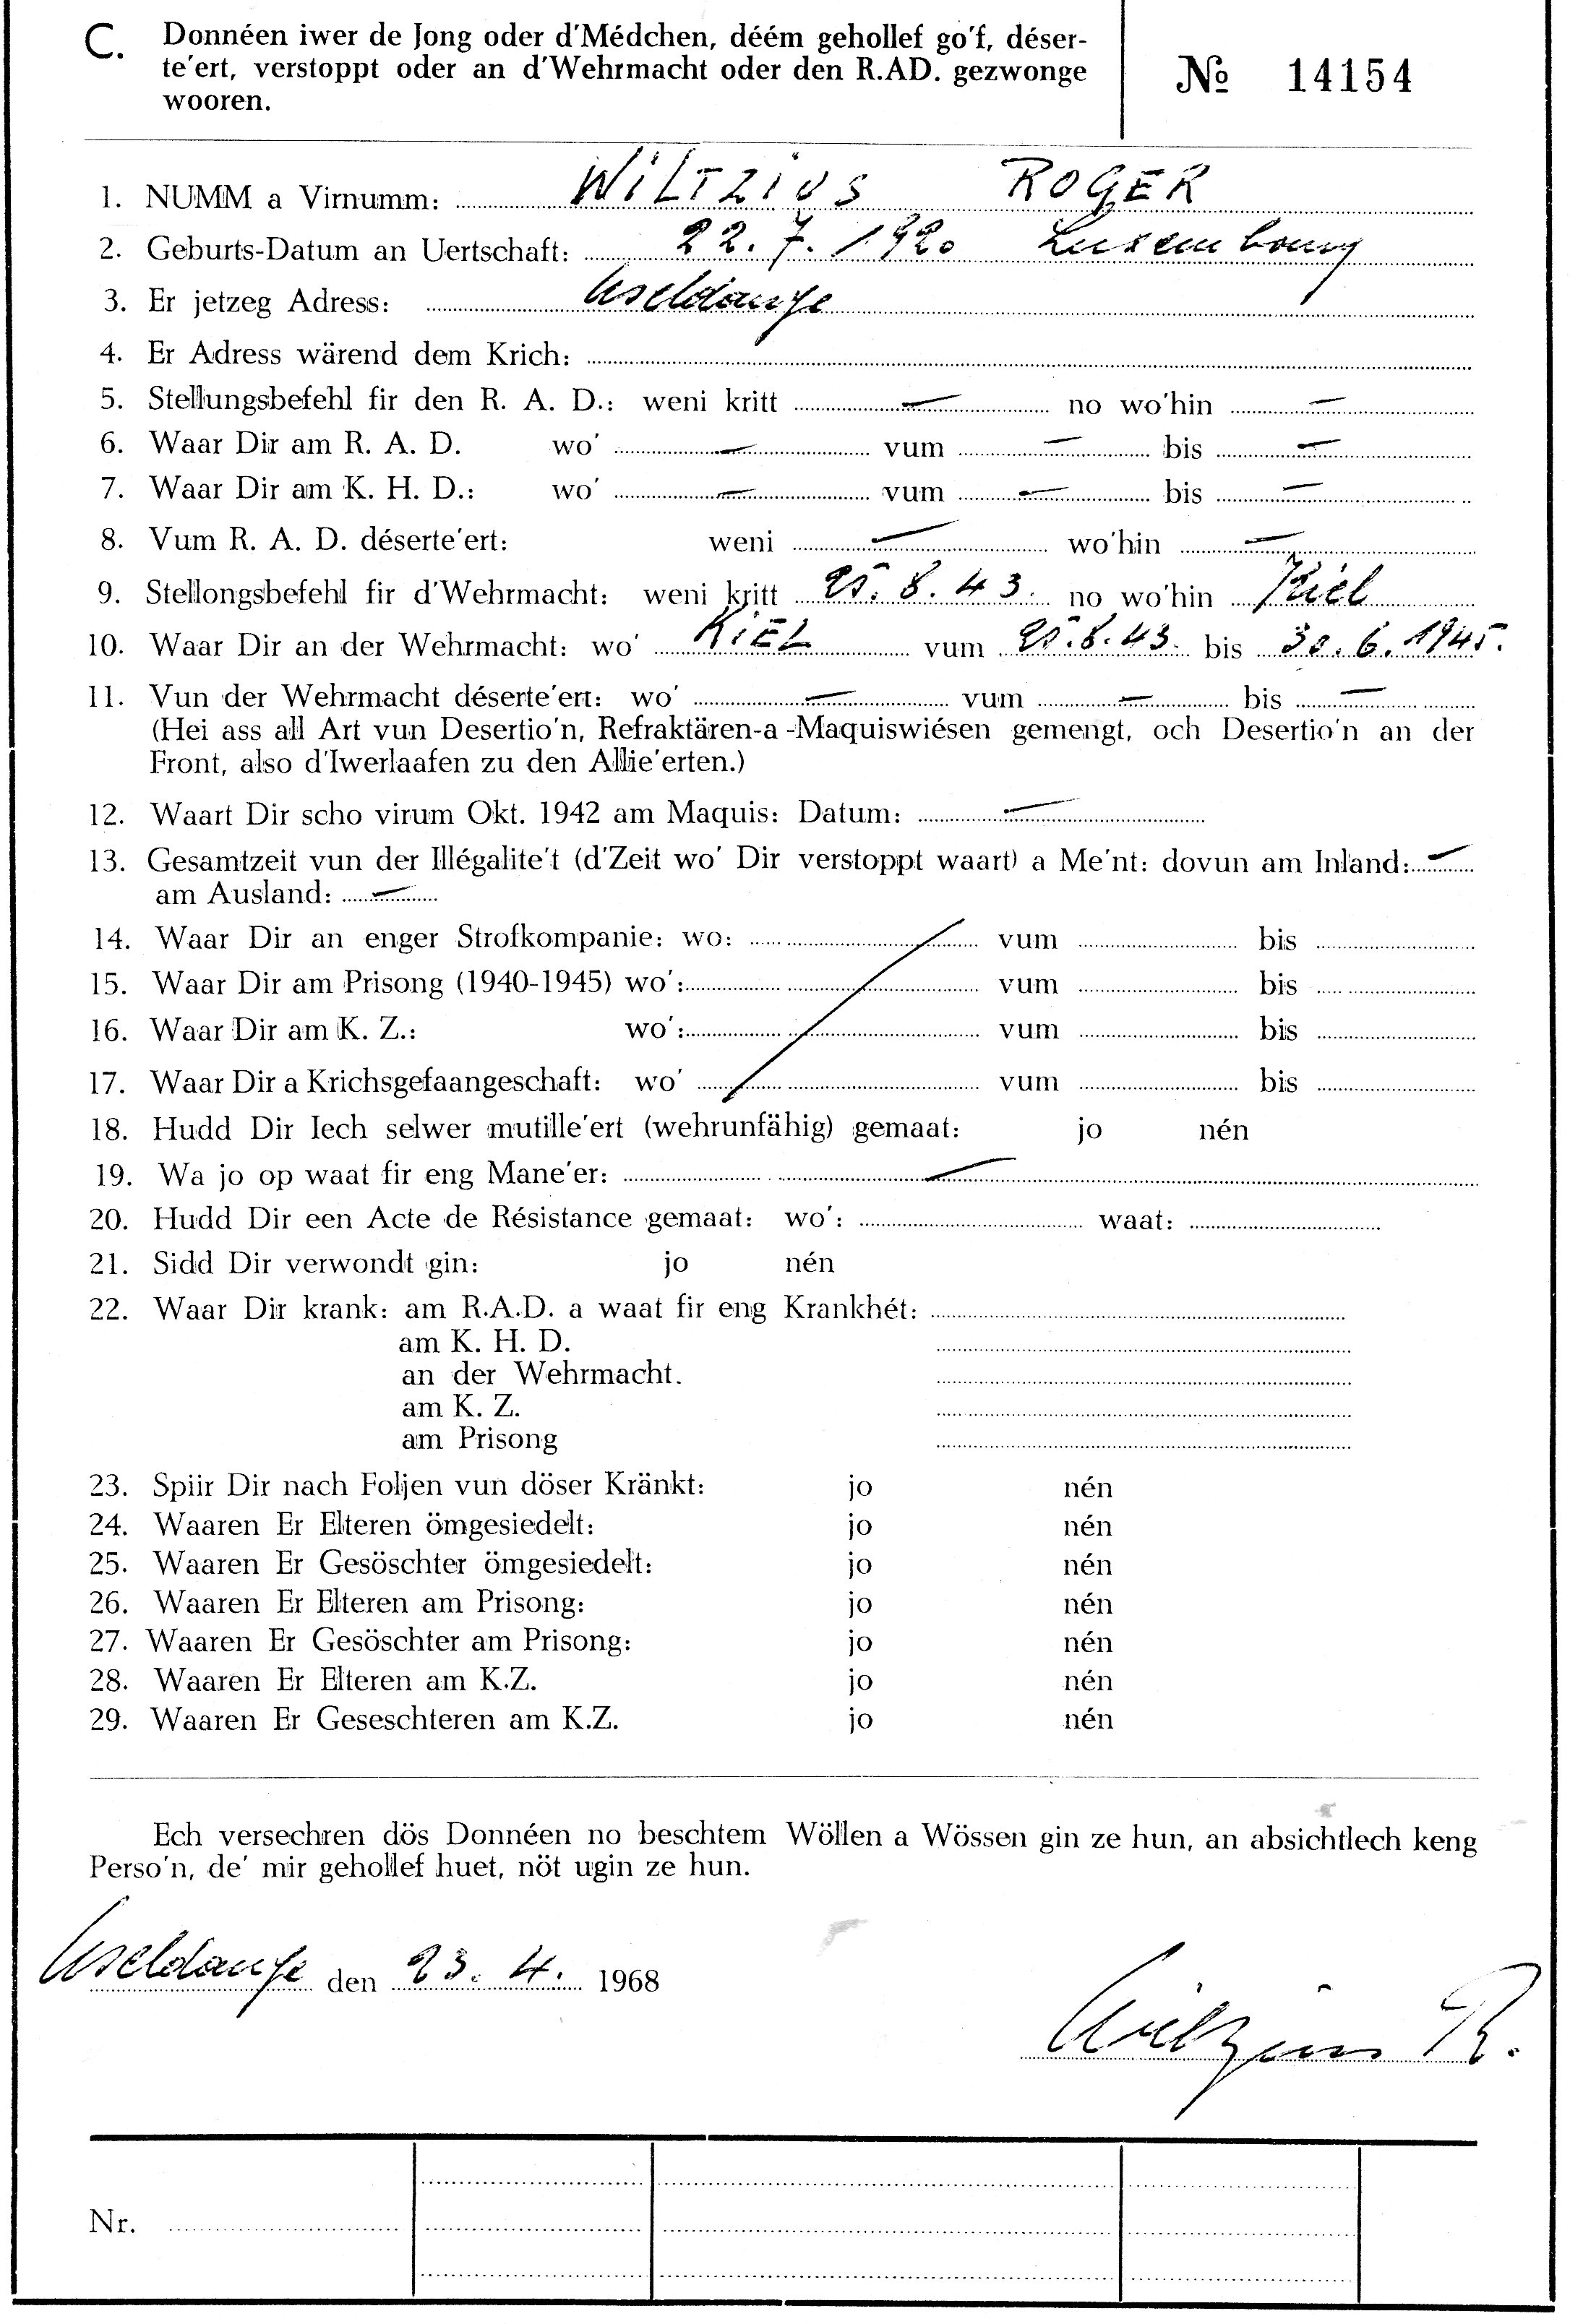 C. Donnéen iwer de Jong oder d'Médchen, déém gehollef go'f, déser-
te'ert, verstoppt oder an d'Wehrmacht oder den R.AD. gezwonge
wooren.
№ 14154
1. NUMM a Virnumm: WILTZIUS ROGER
2. Geburts-Datum an Uertschaft: 22.7.1920 Luxembourg
3. Er jetzeg Adress: Useldange
4. Er Adress wärend dem Krich:
5. Stellungsbefehl fir den R. A. D.: weni kritt — no wo'hin —
6. Waar Dir am R. A. D. wo' — vum — bis —
7. Waar Dir am K. H. D.: wo' — vum — bis —
8. Vum R. A. D. déserte'ert: weni — wo'hin —
9. Stellongsbefehl fir d'Wehrmacht: weni kritt 25.8.43. no wo'hin Kiel
10. Waar Dir an der Wehrmacht: wo' KIEL vum 25.8.43. bis 30.6.1945.
11. Vun der Wehrmacht déserte'ert: wo' — vum — bis —
(Hei ass all Art vun Desertio'n, Refraktären-a -Maquiswiésen gemengt, och Desertio'n an der
Front, also d'Iwerlaafen zu den Allie'erten.)
12. Waart Dir scho virum Okt. 1942 am Maquis: Datum: —
13. Gesamtzeit vun der Illégalite't (d'Zeit wo' Dir verstoppt waart) a Me'nt: dovun am Inland: —
am Ausland: —
14. Waar Dir an enger Strofkompanie: wo: vum bis
15. Waar Dir am Prisong (1940-1945) wo': vum bis
16. Waar Dir am K. Z.: wo': vum bis
17. Waar Dir a Krichsgefaangeschaft: wo' vum bis
18. Hudd Dir Iech selwer mutille'ert (wehrunfähig) gemaat: jo nén
19. Wa jo op waat fir eng Mane'er: —
20. Hudd Dir een Acte de Résistance gemaat: wo': waat:
21. Sidd Dir verwondt gin: jo nén
22. Waar Dir krank: am R.A.D. a waat fir eng Krankhét:
am K. H. D.
an der Wehrmacht.
am K. Z.
am Prisong
23. Spiir Dir nach Foljen vun döser Kränkt: jo nén
24. Waaren Er Elteren ömgesiedelt: jo nén
25. Waaren Er Gesöschter ömgesiedelt: jo nén
26. Waaren Er Elteren am Prisong: jo nén
27. Waaren Er Gesöschter am Prisong: jo nén
28. Waaren Er Elteren am K.Z. jo nén
29. Waaren Er Geseschteren am K.Z. jo nén
Ech versechren dös Donnéen no beschtem Wöllen a Wössen gin ze hun, an absichtlech keng
Perso'n, de' mir gehollef huet, nöt ugin ze hun.
Useldange den 23. 4. 1968
Wiltzius R.
Nr.